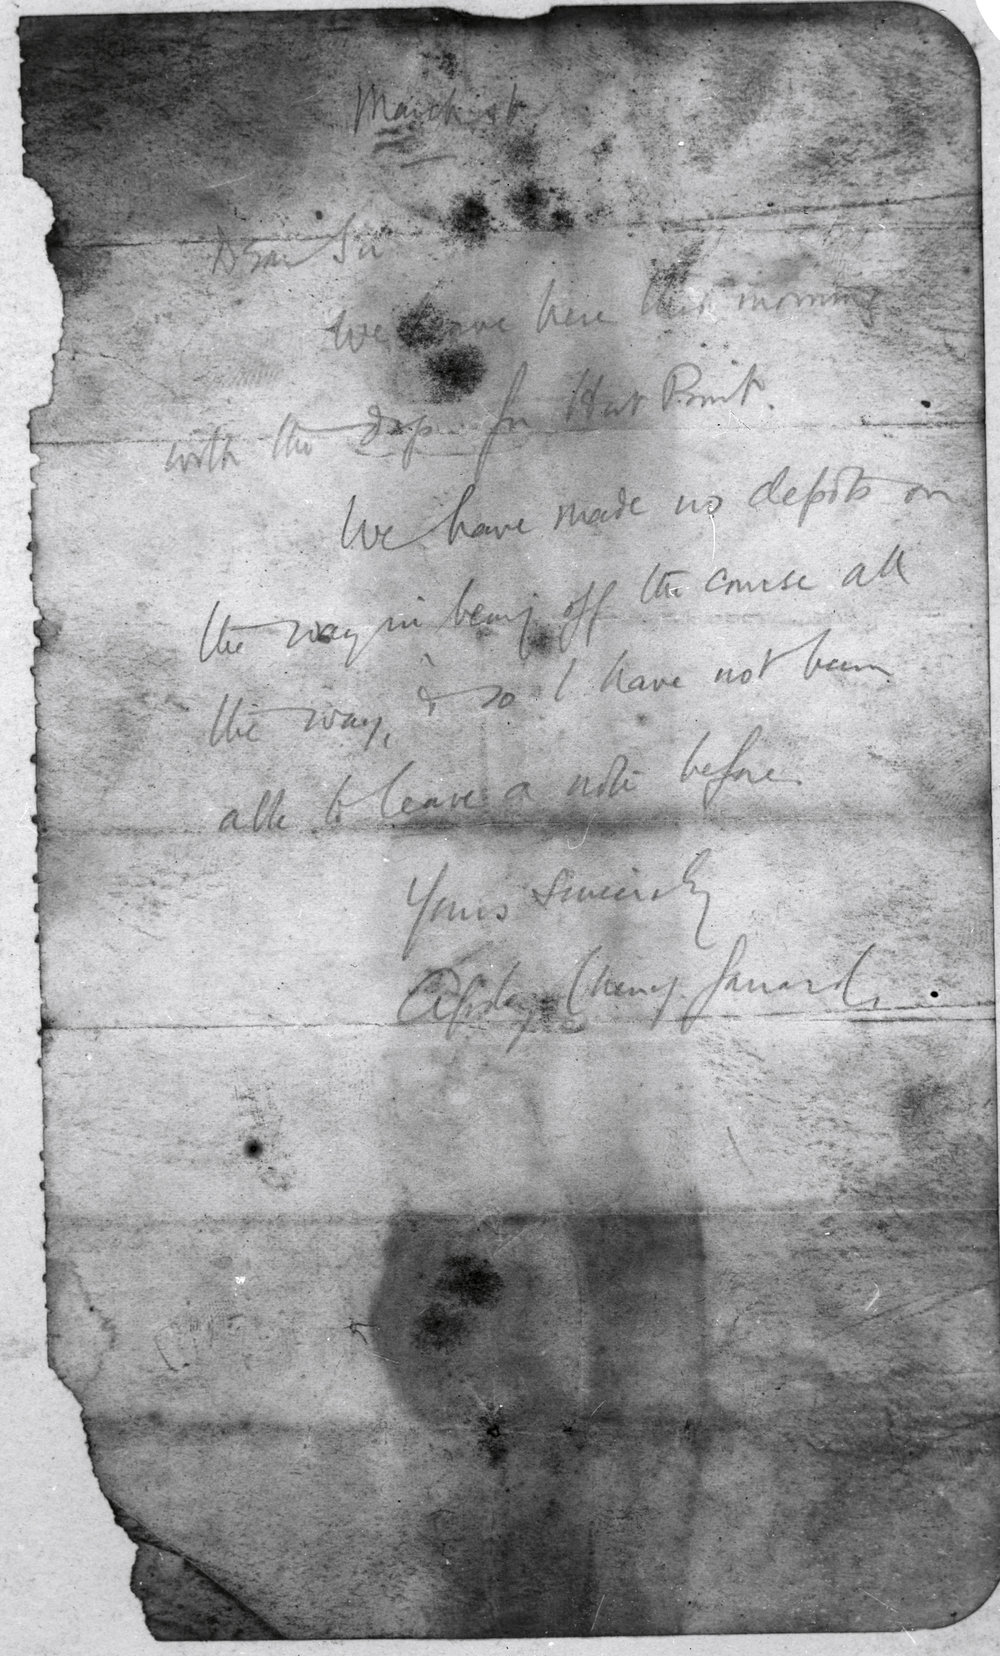 March
Dear Sir
We leave here this morning
with the dogs for Hut Point.
We have made no depôts on
the way in being off the course all
the way, & so I have not been
able to leave a note before.
Yours sincerely
Apsley Cherry-Garrard.